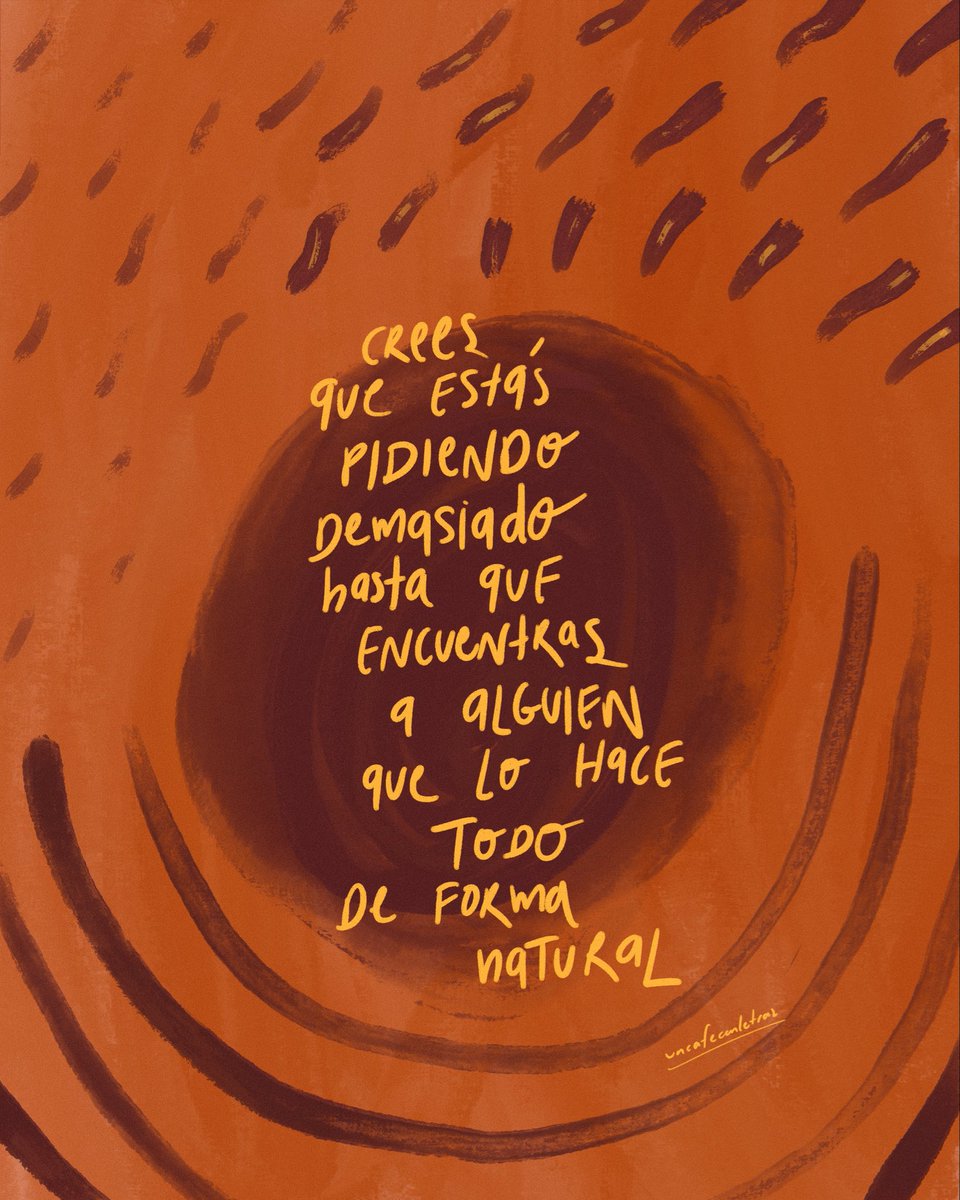 CREES
QUE ESTÁS
PIDIENDO
DEMASIADO
hasta QUE
ENCUENTRAS
a ALGUIEN
QUE LO HACE
TODO
DE FORMA
NATURAL
uncafeconletras